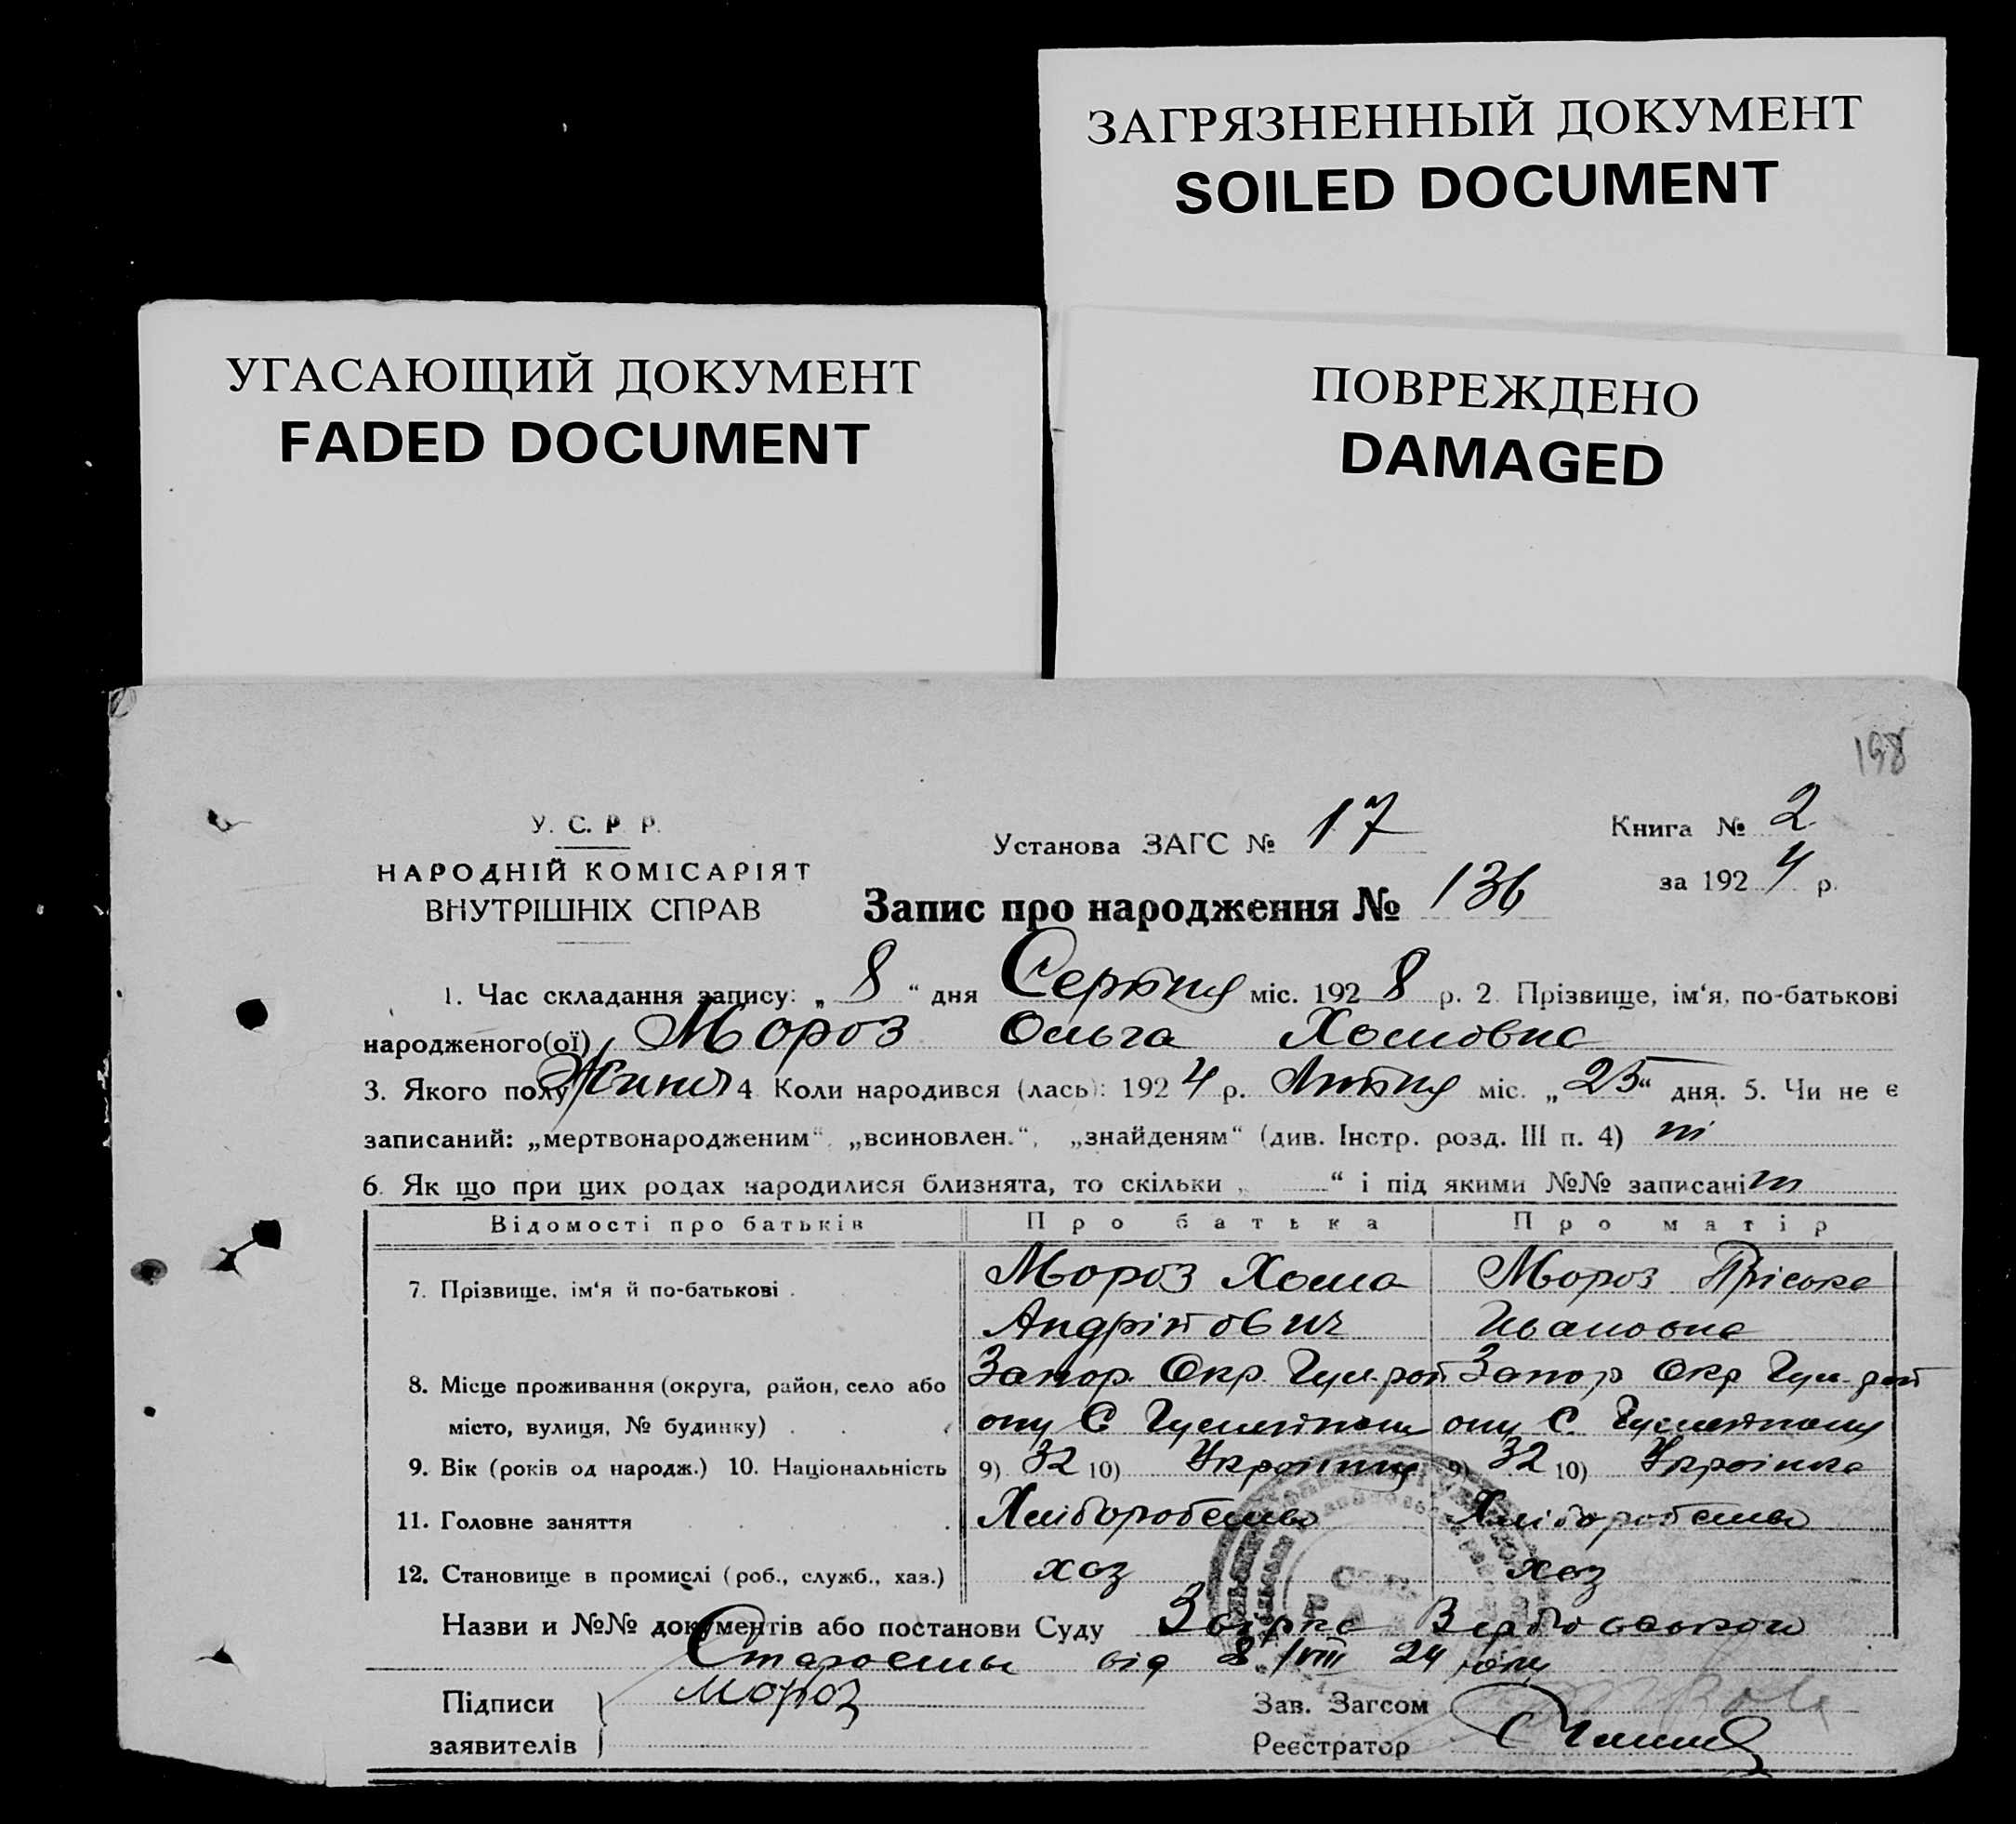 ЗАГРЯЗНЕННЫЙ ДОКУМЕНТ
SOILED DOCUMENT
УГАСАЮЩИЙ ДОКУМЕНТ
FADED DOCUMENT
ПОВРЕЖДЕНО
DAMAGED
198
У. С. Р. Р.
НАРОДНІЙ КОМІСАРІЯТ
ВНУТРІШНІХ СПРАВ
Установа ЗАГС № 17
Книга № 2
за 1924 р.
Запис про народження № 136
1. Час складання запису: „8“ дня Серпня міс. 1928 р. 2. Прізвище, ім‘я, по-батькові
народженого(ої) Мороз Ольга Хомовна
3. Якого полу 4. Коли народився (лась): 1924 р. Липня міс. „25“ дня. 5. Чи не є
записаний: „мертвонародженим“, „всиновлен.“, „знайденям“ (див. Інстр. розд. III п. 4) ні
6. Як що при цих родах народилися близнята, то скільки „ “ і під якими №№ записані ні
Відомості про батьків Про батька Про матір
7. Прізвище, ім‘я й по-батькові Мороз Хома Мороз Пріська
Андрійович Ивановна
8. Місце проживання (округа, район, село або Запор. Окр. Гул. рай Запор Окр Гул. рай
місто, вулиця, № будинку) ону С ону С.
9. Вік (років од народж.) 10. Національність 9) 32 10) Українц 9) 32 10) Українка
11. Головне заняття Хліборобство Хліборобство
12. Становище в промислі (роб., служб., хаз.) хоз хоз
Назви и №№ документів або постанови Суду
від 8/VIII 24 року
Підписи Мороз Зав. Загсом
заявителів Реєстратор